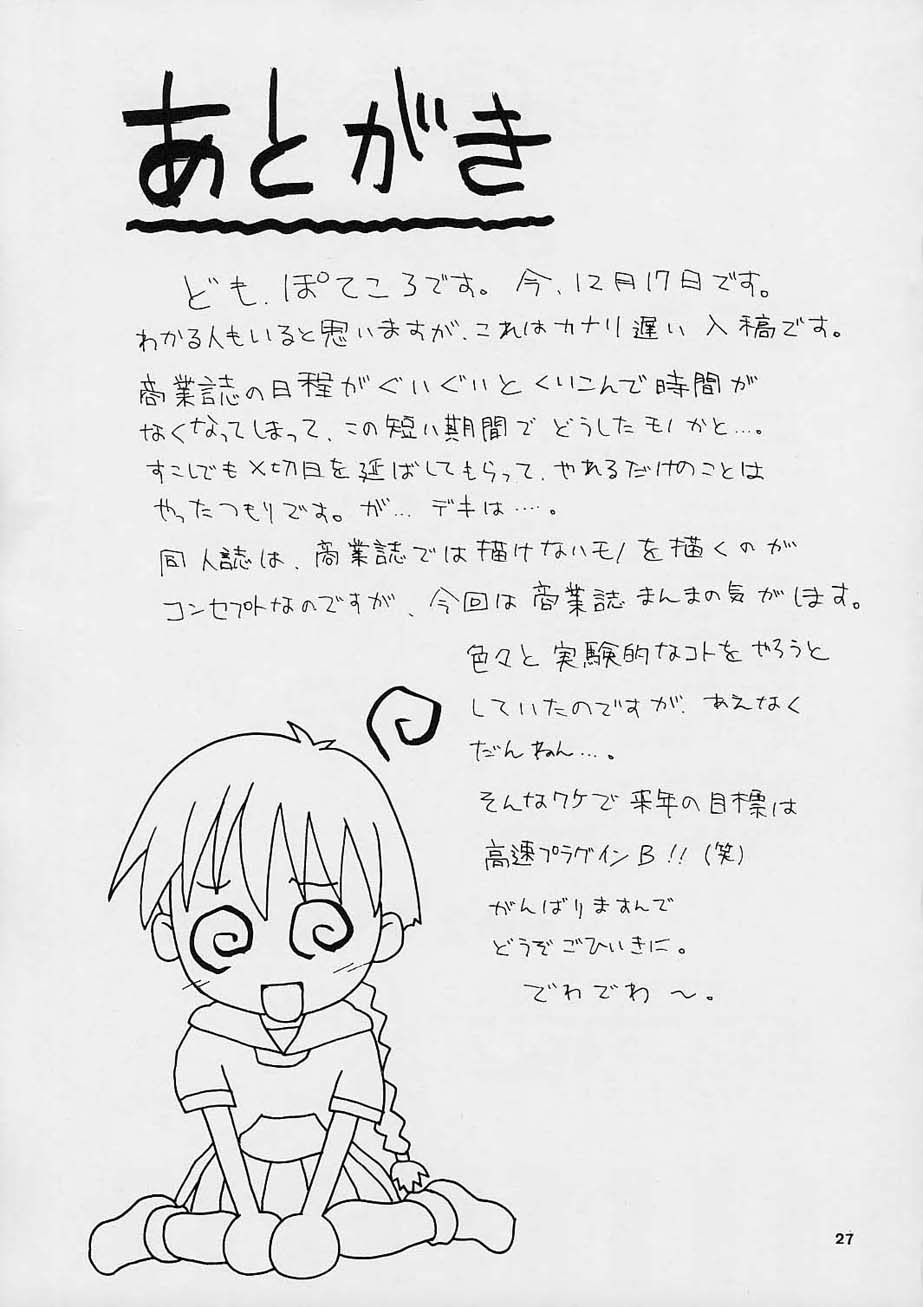 あとがき
ども、ぽてころです。今、12月17日です。
わかる人もいると思いますが、これはカナリ遅い入稿です。
商業誌の日程がぐいぐいとくいこんで時間が
なくなってしまって、この短い期間でどうしたモノかと…。
すこしでも〆切日を延ばしてもらって、やれるだけのことは
やったつもりです。が… デキは…。
同人誌は、商業誌では描けないモノを描くのが
コンセプトなのですが、今回は商業誌まんまの気がします。
色々と実験的なコトをやろうと
していたのですが、あえなく
だんねん…。
そんなワケで来年の目標は
高速プラグインB!!(笑)
がんばりますんで
どうぞごひいきに。
でわでわ〜。
27